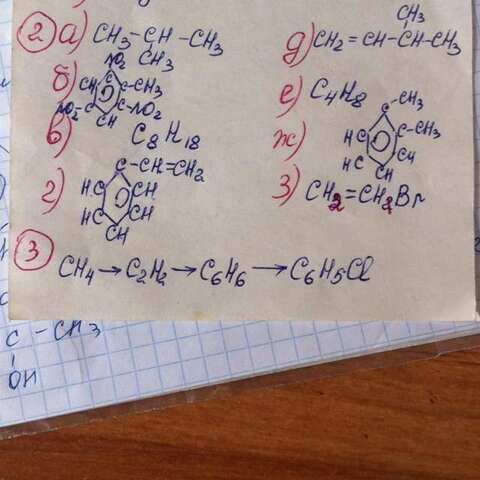 2 а) CH₃-CH-CH₃
CH₃
б) NO₂
CH C C-CH₃
NO₂-C C-NO₂
CH
в) C₈H₁₈
г) C-CH=CH₂
HC CH
HC CH
CH
д) CH₃
CH₂=CH-CH-CH₃
е) C₄H₈
ж) C-CH₃
HC C-CH₃
HC CH
CH
з) CH₂=CH₂Br
3
CH₄→C₂H₂→C₆H₆→C₆H₅Cl
C-CH₃
OH